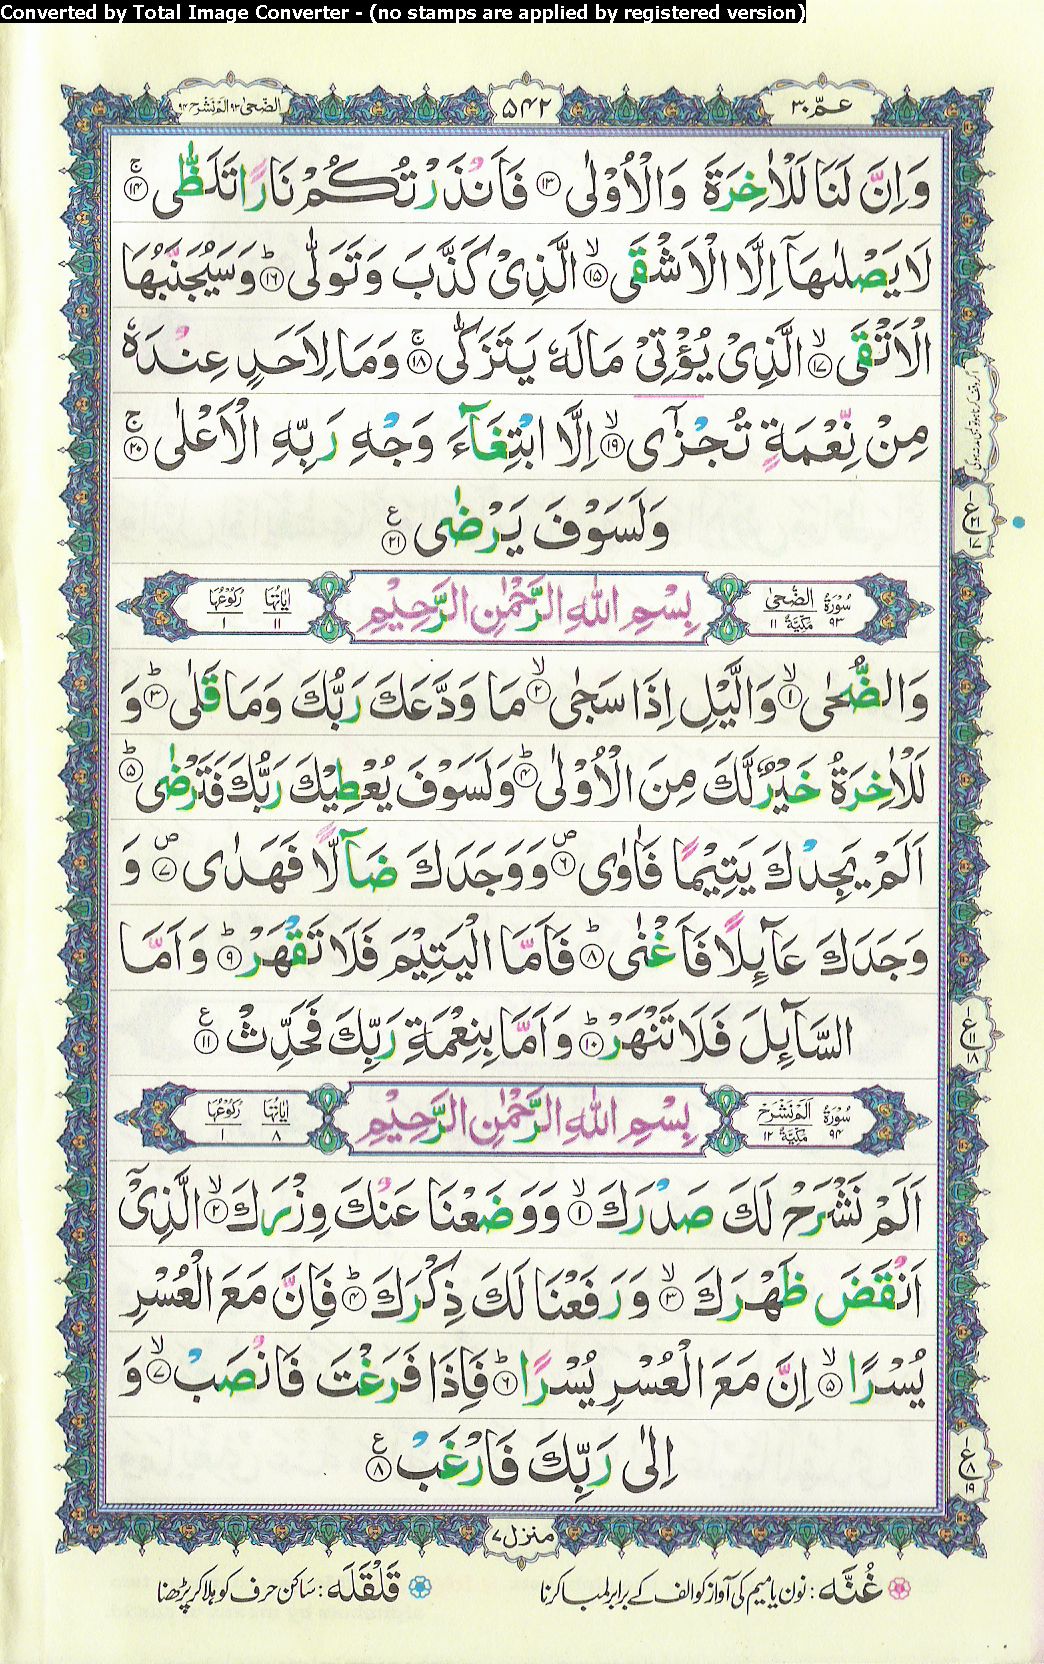 Converted by Total Image Converter - (no stamps are applied by registered version)
عمّ ٣٠
۵۴۲
الضّحٰى ٩٣ الم نشرح ٩٤
وَاِنَّ لَنَا لَلْاٰخِرَةَ وَالْاُوْلٰى ١٣ فَاَنْذَرْتُكُمْ نَارًا تَلَظّٰى ۚ ١٤
لَا يَصْلٰىهَاۤ اِلَّا الْاَشْقَى ۙ ١٥ الَّذِىْ كَذَّبَ وَتَوَلّٰى ؕ ١٦ وَسَيُجَنَّبُهَا
الْاَتْقَى ۙ ١٧ الَّذِىْ يُؤْتِىْ مَالَهٗ يَتَزَكّٰى ۚ ١٨ وَمَا لِاَحَدٍ عِنْدَهٗ
مِنْ نِّعْمَةٍ تُجْزٰٓى ۙ ١٩ اِلَّا ابْتِغَآءَ وَجْهِ رَبِّهِ الْاَعْلٰى ۚ ٢٠
وَلَسَوْفَ يَرْضٰى ع ٢١
ع ١ ٢١ ١٧
سُوْرَةُ الضُّحٰى ٩٣ مَكِّيَّةٌ ١١
بِسْمِ اللّٰهِ الرَّحْمٰنِ الرَّحِيْمِ
اٰيَاتُهَا ١١ رُكُوْعُهَا ١
وَالضُّحٰى ۙ ١ وَالَّيْلِ اِذَا سَجٰى ۙ ٢ مَا وَدَّعَكَ رَبُّكَ وَمَا قَلٰى ؕ ٣ وَ
لَلْاٰخِرَةُ خَيْرٌ لَّكَ مِنَ الْاُوْلٰى ؕ ٤ وَلَسَوْفَ يُعْطِيْكَ رَبُّكَ فَتَرْضٰى ؕ ٥
اَلَمْ يَجِدْكَ يَتِيْمًا فَاٰوٰى ص ٦ وَوَجَدَكَ ضَآلًّا فَهَدٰى ص ٧ وَ
وَجَدَكَ عَآئِلًا فَاَغْنٰى ؕ ٨ فَاَمَّا الْيَتِيْمَ فَلَا تَقْهَرْ ؕ ٩ وَاَمَّا
السَّآئِلَ فَلَا تَنْهَرْ ؕ ١٠ وَاَمَّا بِنِعْمَةِ رَبِّكَ فَحَدِّثْ ع ١١
ع ١ ١١ ١٨
سُوْرَةُ اَلَمْ نَشْرَحْ ٩٤ مَكِّيَّةٌ ١٢
بِسْمِ اللّٰهِ الرَّحْمٰنِ الرَّحِيْمِ
اٰيَاتُهَا ٨ رُكُوْعُهَا ١
اَلَمْ نَشْرَحْ لَكَ صَدْرَكَ ۙ ١ وَوَضَعْنَا عَنْكَ وِزْرَكَ ۙ ٢ الَّذِىْۤ
اَنْقَضَ ظَهْرَكَ ۙ ٣ وَرَفَعْنَا لَكَ ذِكْرَكَ ؕ ٤ فَاِنَّ مَعَ الْعُسْرِ
يُسْرًا ۙ ٥ اِنَّ مَعَ الْعُسْرِ يُسْرًا ؕ ٦ فَاِذَا فَرَغْتَ فَانْصَبْ ۙ ٧ وَ
اِلٰى رَبِّكَ فَارْغَبْ ع ٨
ع ١ ٨ ١٩
منزل ٧
غُنَّه: نون یا میم کی آواز کو الف کے برابر لمبا کرنا
قَلْقَلَه: ساکن حرف کو ہلا کر پڑھنا